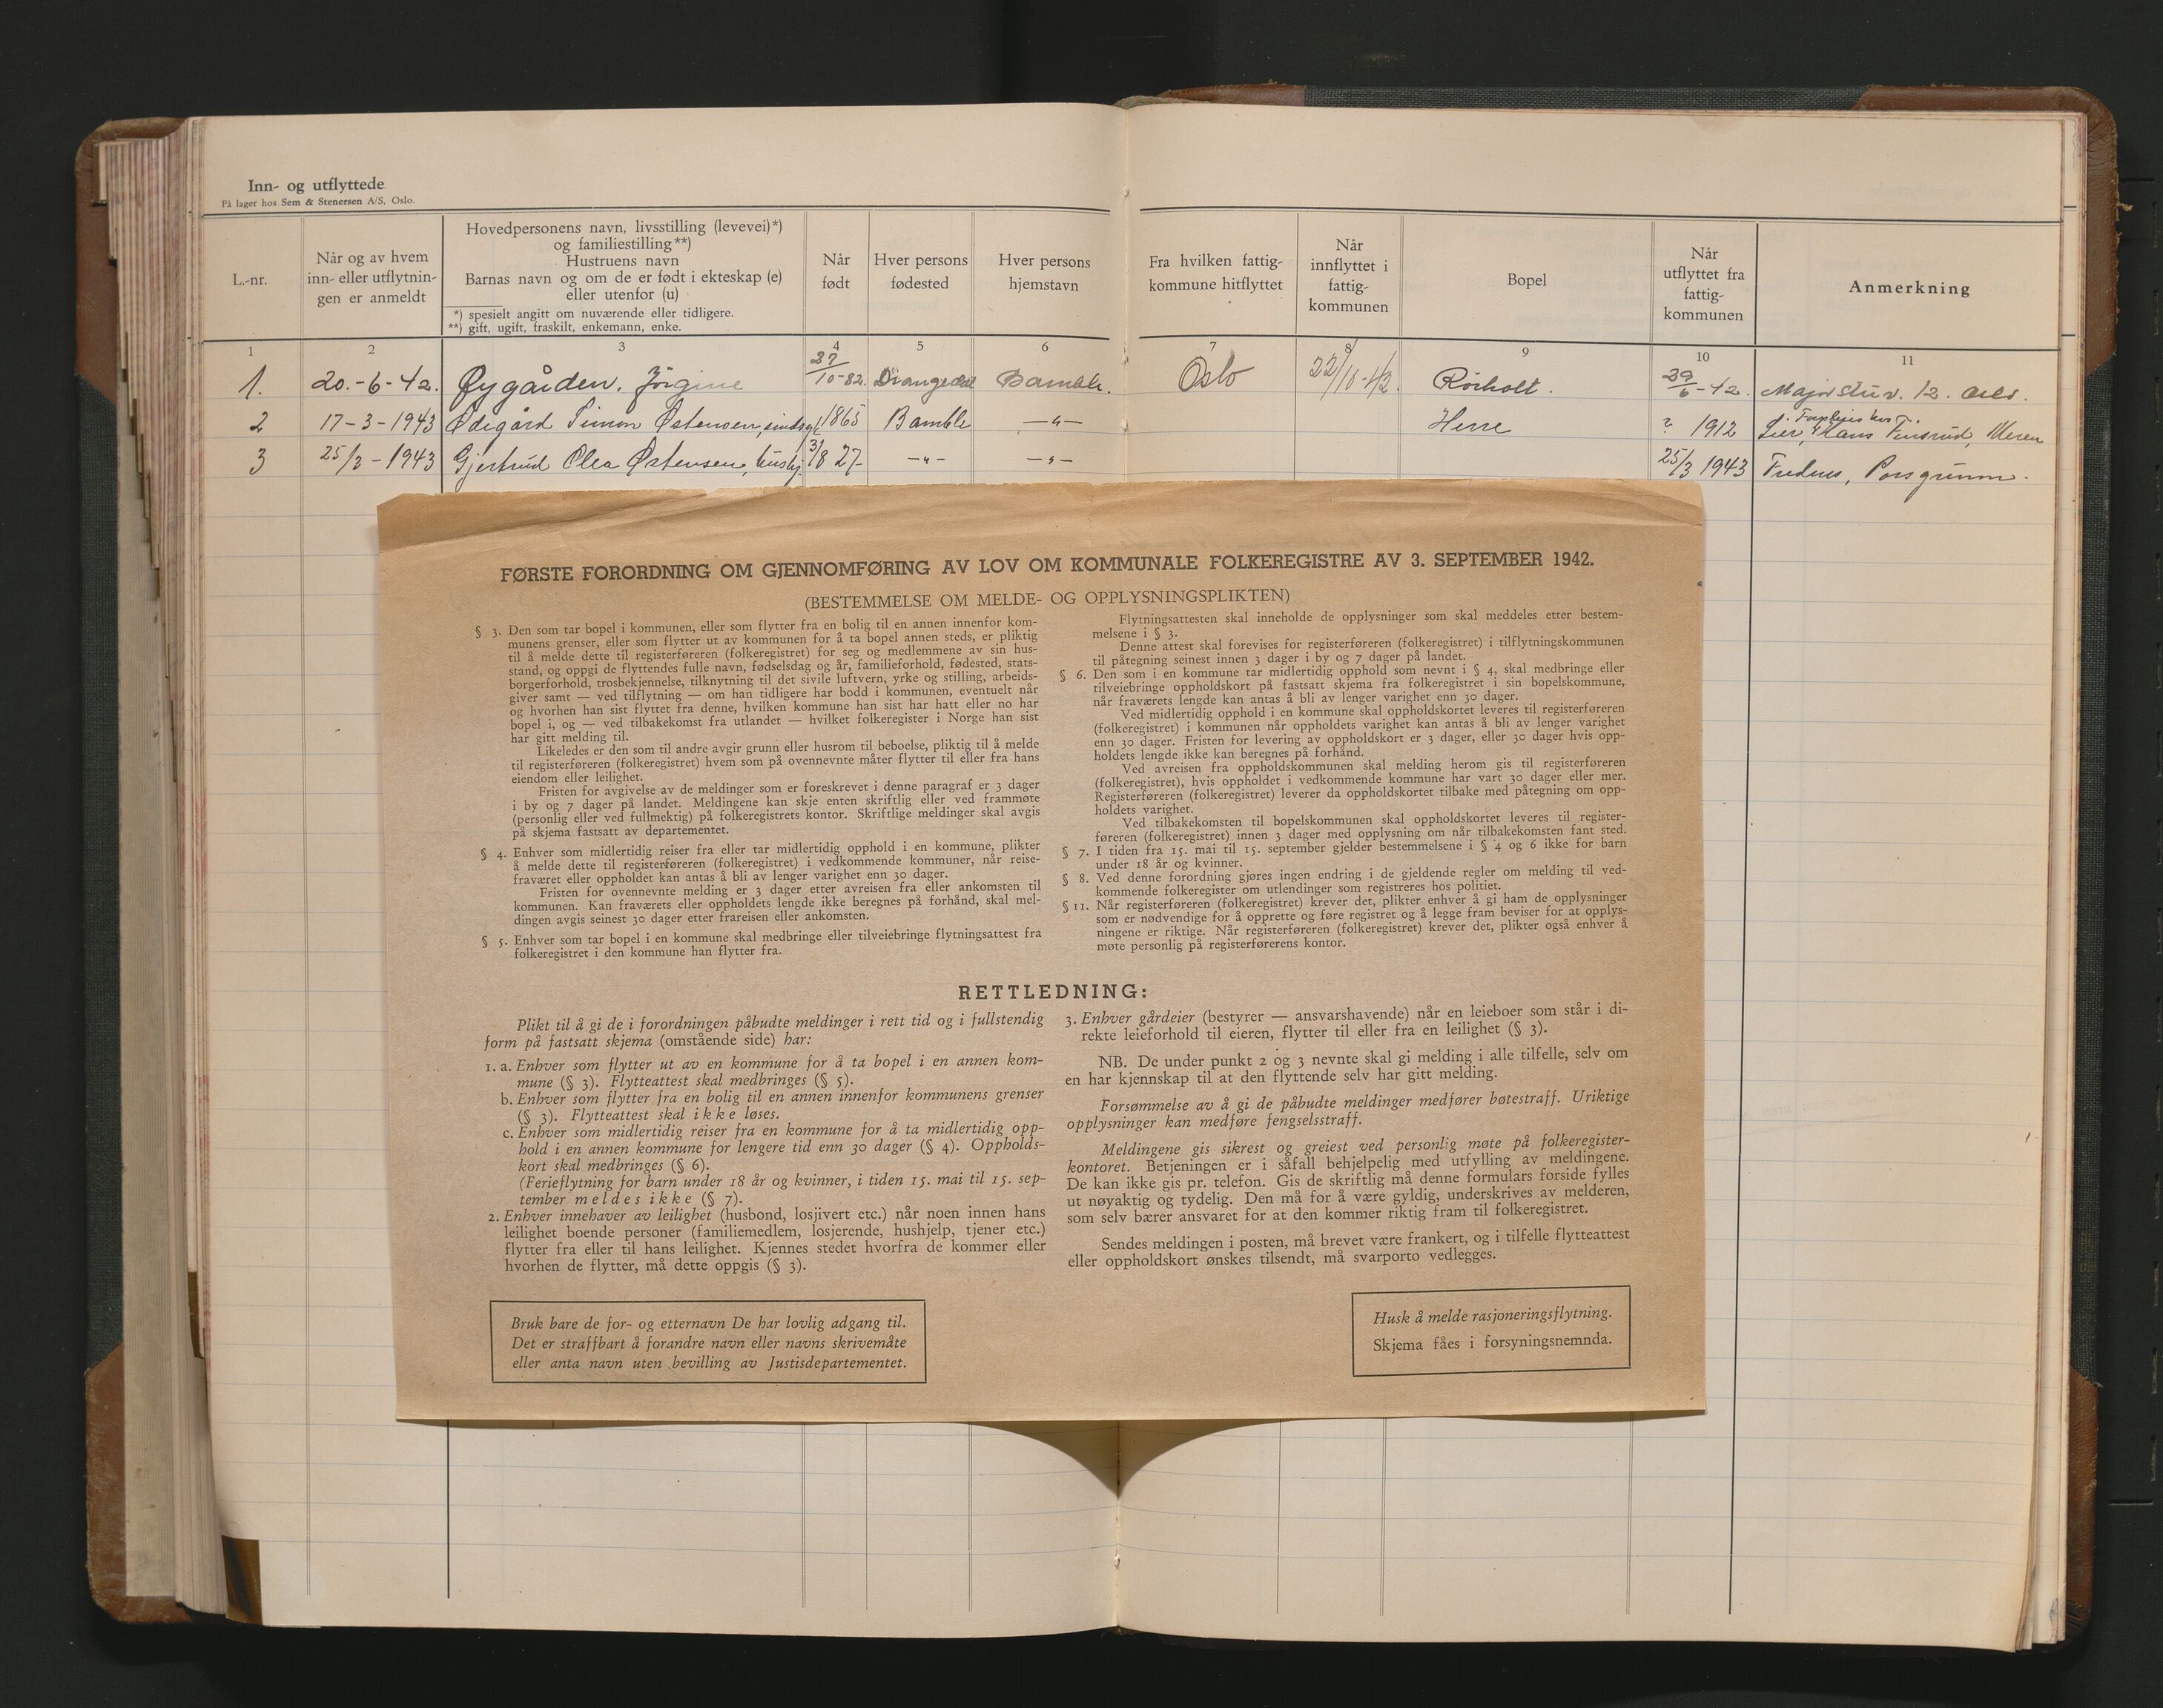 Inn- og utflyttede
På lager hos Sem & Stenersen A/S, Oslo.
L.-nr.
Når og av hvem
inn- eller utflytnin-
gen er anmeldt
Hovedpersonens navn, livsstilling (levevei)*)
og familiestilling**)
Hustruens navn
Barnas navn og om de er født i ekteskap (e)
eller utenfor (u)
*) spesielt angitt om nuværende eller tidligere.
**) gift, ugift, fraskilt, enkemann, enke.
Når
født
Hver persons
fødested
Hver persons
hjemstavn
Fra hvilken fattig-
kommune hitflyttet
Når
innflyttet i
fattig-
kommunen
Bopel
Når
utflyttet fra
fattig-
kommunen
Anmerkning
1 2 3 4 5 6 7 8 9 10 11
1. 20.-6-42. Øygården, Jörgine 27/10-82. Drangedal Bamble. Oslo 22/10-42. Rörholt. 29/6-42. Majorstuv. 12. Oslo.
2 17-3-1943 Ødegård Simon Østensen, sinds 1865 Bamble -"- Herre ? 1912 Lier, Hans Finsrud,
3 25/3-1943 Gjertrud Olea Østensen, 3/8 27- -"- -"- 25/3 1943 Porsgrunn.
FØRSTE FORORDNING OM GJENNOMFØRING AV LOV OM KOMMUNALE FOLKEREGISTRE AV 3. SEPTEMBER 1942.
(BESTEMMELSE OM MELDE- OG OPPLYSNINGSPLIKTEN)
§ 3. Den som tar bopel i kommunen, eller som flytter fra en bolig til en annen innenfor kom-
munens grenser, eller som flytter ut av kommunen for å ta bopel annen steds, er pliktig
til å melde dette til registerføreren (folkeregistret) for seg og medlemmene av sin hus-
stand, og oppgi de flyttendes fulle navn, fødselsdag og år, familieforhold, fødested, stats-
borgerforhold, trosbekjennelse, tilknytning til det sivile luftvern, yrke og stilling, arbeids-
giver samt — ved tilflytning — om han tidligere har bodd i kommunen, eventuelt når
og hvorhen han sist flyttet fra denne, hvilken kommune han sist har hatt eller no har
bopel i, og — ved tilbakekomst fra utlandet — hvilket folkeregister i Norge han sist
har gitt melding til.
Likeledes er den som til andre avgir grunn eller husrom til beboelse, pliktig til å melde
til registerføreren (folkeregistret) hvem som på ovennevnte måter flytter til eller fra hans
eiendom eller leilighet.
Fristen for avgivelse av de meldinger som er foreskrevet i denne paragraf er 3 dager
i by og 7 dager på landet. Meldingene kan skje enten skriftlig eller ved frammøte
(personlig eller ved fullmektig) på folkeregistrets kontor. Skriftlige meldinger skal avgis
på skjema fastsatt av departementet.
§ 4. Enhver som midlertidig reiser fra eller tar midlertidig opphold i en kommune, plikter
å melde dette til registerføreren (folkeregistret) i vedkommende kommuner, når reise-
fraværet eller oppholdet kan antas å bli av lenger varighet enn 30 dager.
Fristen for ovennevnte melding er 3 dager etter avreisen fra eller ankomsten til
kommunen. Kan fraværets eller oppholdets lengde ikke beregnes på forhånd, skal mel-
dingen avgis seinest 30 dager etter frareisen eller ankomsten.
§ 5. Enhver som tar bopel i en kommune skal medbringe eller tilveiebringe flytningsattest fra
folkeregistret i den kommune han flytter fra.
Flytningsattesten skal inneholde de opplysninger som skal meddeles etter bestem-
melsene i § 3.
Denne attest skal forevises for registerføreren (folkeregistret) i tilflytningskommunen
til påtegning seinest innen 3 dager i by og 7 dager på landet.
§ 6. Den som i en kommune tar midlertidig opphold som nevnt i § 4, skal medbringe eller
tilveiebringe oppholdskort på fastsatt skjema fra folkeregistret i sin bopelskommune,
når fraværets lengde kan antas å bli av lenger varighet enn 30 dager.
Ved midlertidig opphold i en kommune skal oppholdskortet leveres til registerføreren
(folkeregistret) i kommunen når oppholdets varighet kan antas å bli av lenger varighet
enn 30 dager. Fristen for levering av oppholdskort er 3 dager, eller 30 dager hvis opp-
holdets lengde ikke kan beregnes på forhånd.
Ved avreisen fra oppholdskommunen skal melding herom gis til registerføreren
(folkeregistret), hvis oppholdet i vedkommende kommune har vart 30 dager eller mer.
Registerføreren (folkeregistret) leverer da oppholdskortet tilbake med påtegning om opp-
holdets varighet.
Ved tilbakekomsten til bopelskommunen skal oppholdskortet leveres til register-
føreren (folkeregistret) innen 3 dager med opplysning om når tilbakekomsten fant sted.
§ 7. I tiden fra 15. mai til 15. september gjelder bestemmelsene i § 4 og 6 ikke for barn
under 18 år og kvinner.
§ 8. Ved denne forordning gjøres ingen endring i de gjeldende regler om melding til ved-
kommende folkeregister om utlendinger som registreres hos politiet.
§ 11. Når registerføreren (folkeregistret) krever det, plikter enhver å gi ham de opplysninger
som er nødvendige for å opprette og føre registret og å legge fram beviser for at opplys-
ningene er riktige. Når registerføreren (folkeregistret) krever det, plikter også enhver å
møte personlig på registerførerens kontor.
RETTLEDNING:
Plikt til å gi de i forordningen påbudte meldinger i rett tid og i fullstendig
form på fastsatt skjema (omstående side) har:
1. a. Enhver som flytter ut av en kommune for å ta bopel i en annen kom-
mune (§ 3). Flytteattest skal medbringes (§ 5).
b. Enhver som flytter fra en bolig til en annen innenfor kommunens grenser
(§ 3). Flytteattest skal ikke løses.
c. Enhver som midlertidig reiser fra en kommune for å ta midlertidig opp-
hold i en annen kommune for lengere tid enn 30 dager (§ 4). Oppholds-
kort skal medbringes (§ 6).
(Ferieflytning for barn under 18 år og kvinner, i tiden 15. mai til 15. sep-
tember meldes ikke (§ 7).
2. Enhver innehaver av leilighet (husbond, losjivert etc.) når noen innen hans
leilighet boende personer (familiemedlem, losjerende, hushjelp, tjener etc.)
flytter fra eller til hans leilighet. Kjennes stedet hvorfra de kommer eller
hvorhen de flytter, må dette oppgis (§ 3).
3. Enhver gårdeier (bestyrer — ansvarshavende) når en leieboer som står i di-
rekte leieforhold til eieren, flytter til eller fra en leilighet (§ 3).
NB. De under punkt 2 og 3 nevnte skal gi melding i alle tilfelle, selv om
en har kjennskap til at den flyttende selv har gitt melding.
Forsømmelse av å gi de påbudte meldinger medfører bøtestraff. Uriktige
opplysninger kan medføre fengselsstraff.
Meldingene gis sikrest og greiest ved personlig møte på folkeregister-
kontoret. Betjeningen er i såfall behjelpelig med utfylling av meldingene.
De kan ikke gis pr. telefon. Gis de skriftlig må denne formulars forside fylles
ut nøyaktig og tydelig. Den må for å være gyldig, underskrives av melderen,
som selv bærer ansvaret for at den kommer riktig fram til folkeregistret.
Sendes meldingen i posten, må brevet være frankert, og i tilfelle flytteattest
eller oppholdskort ønskes tilsendt, må svarporto vedlegges.
Bruk bare de for- og etternavn De har lovlig adgang til.
Det er straffbart å forandre navn eller navns skrivemåte
eller anta navn uten bevilling av Justisdepartementet.
Husk å melde rasjoneringsflytning.
Skjema fåes i forsyningsnemnda.